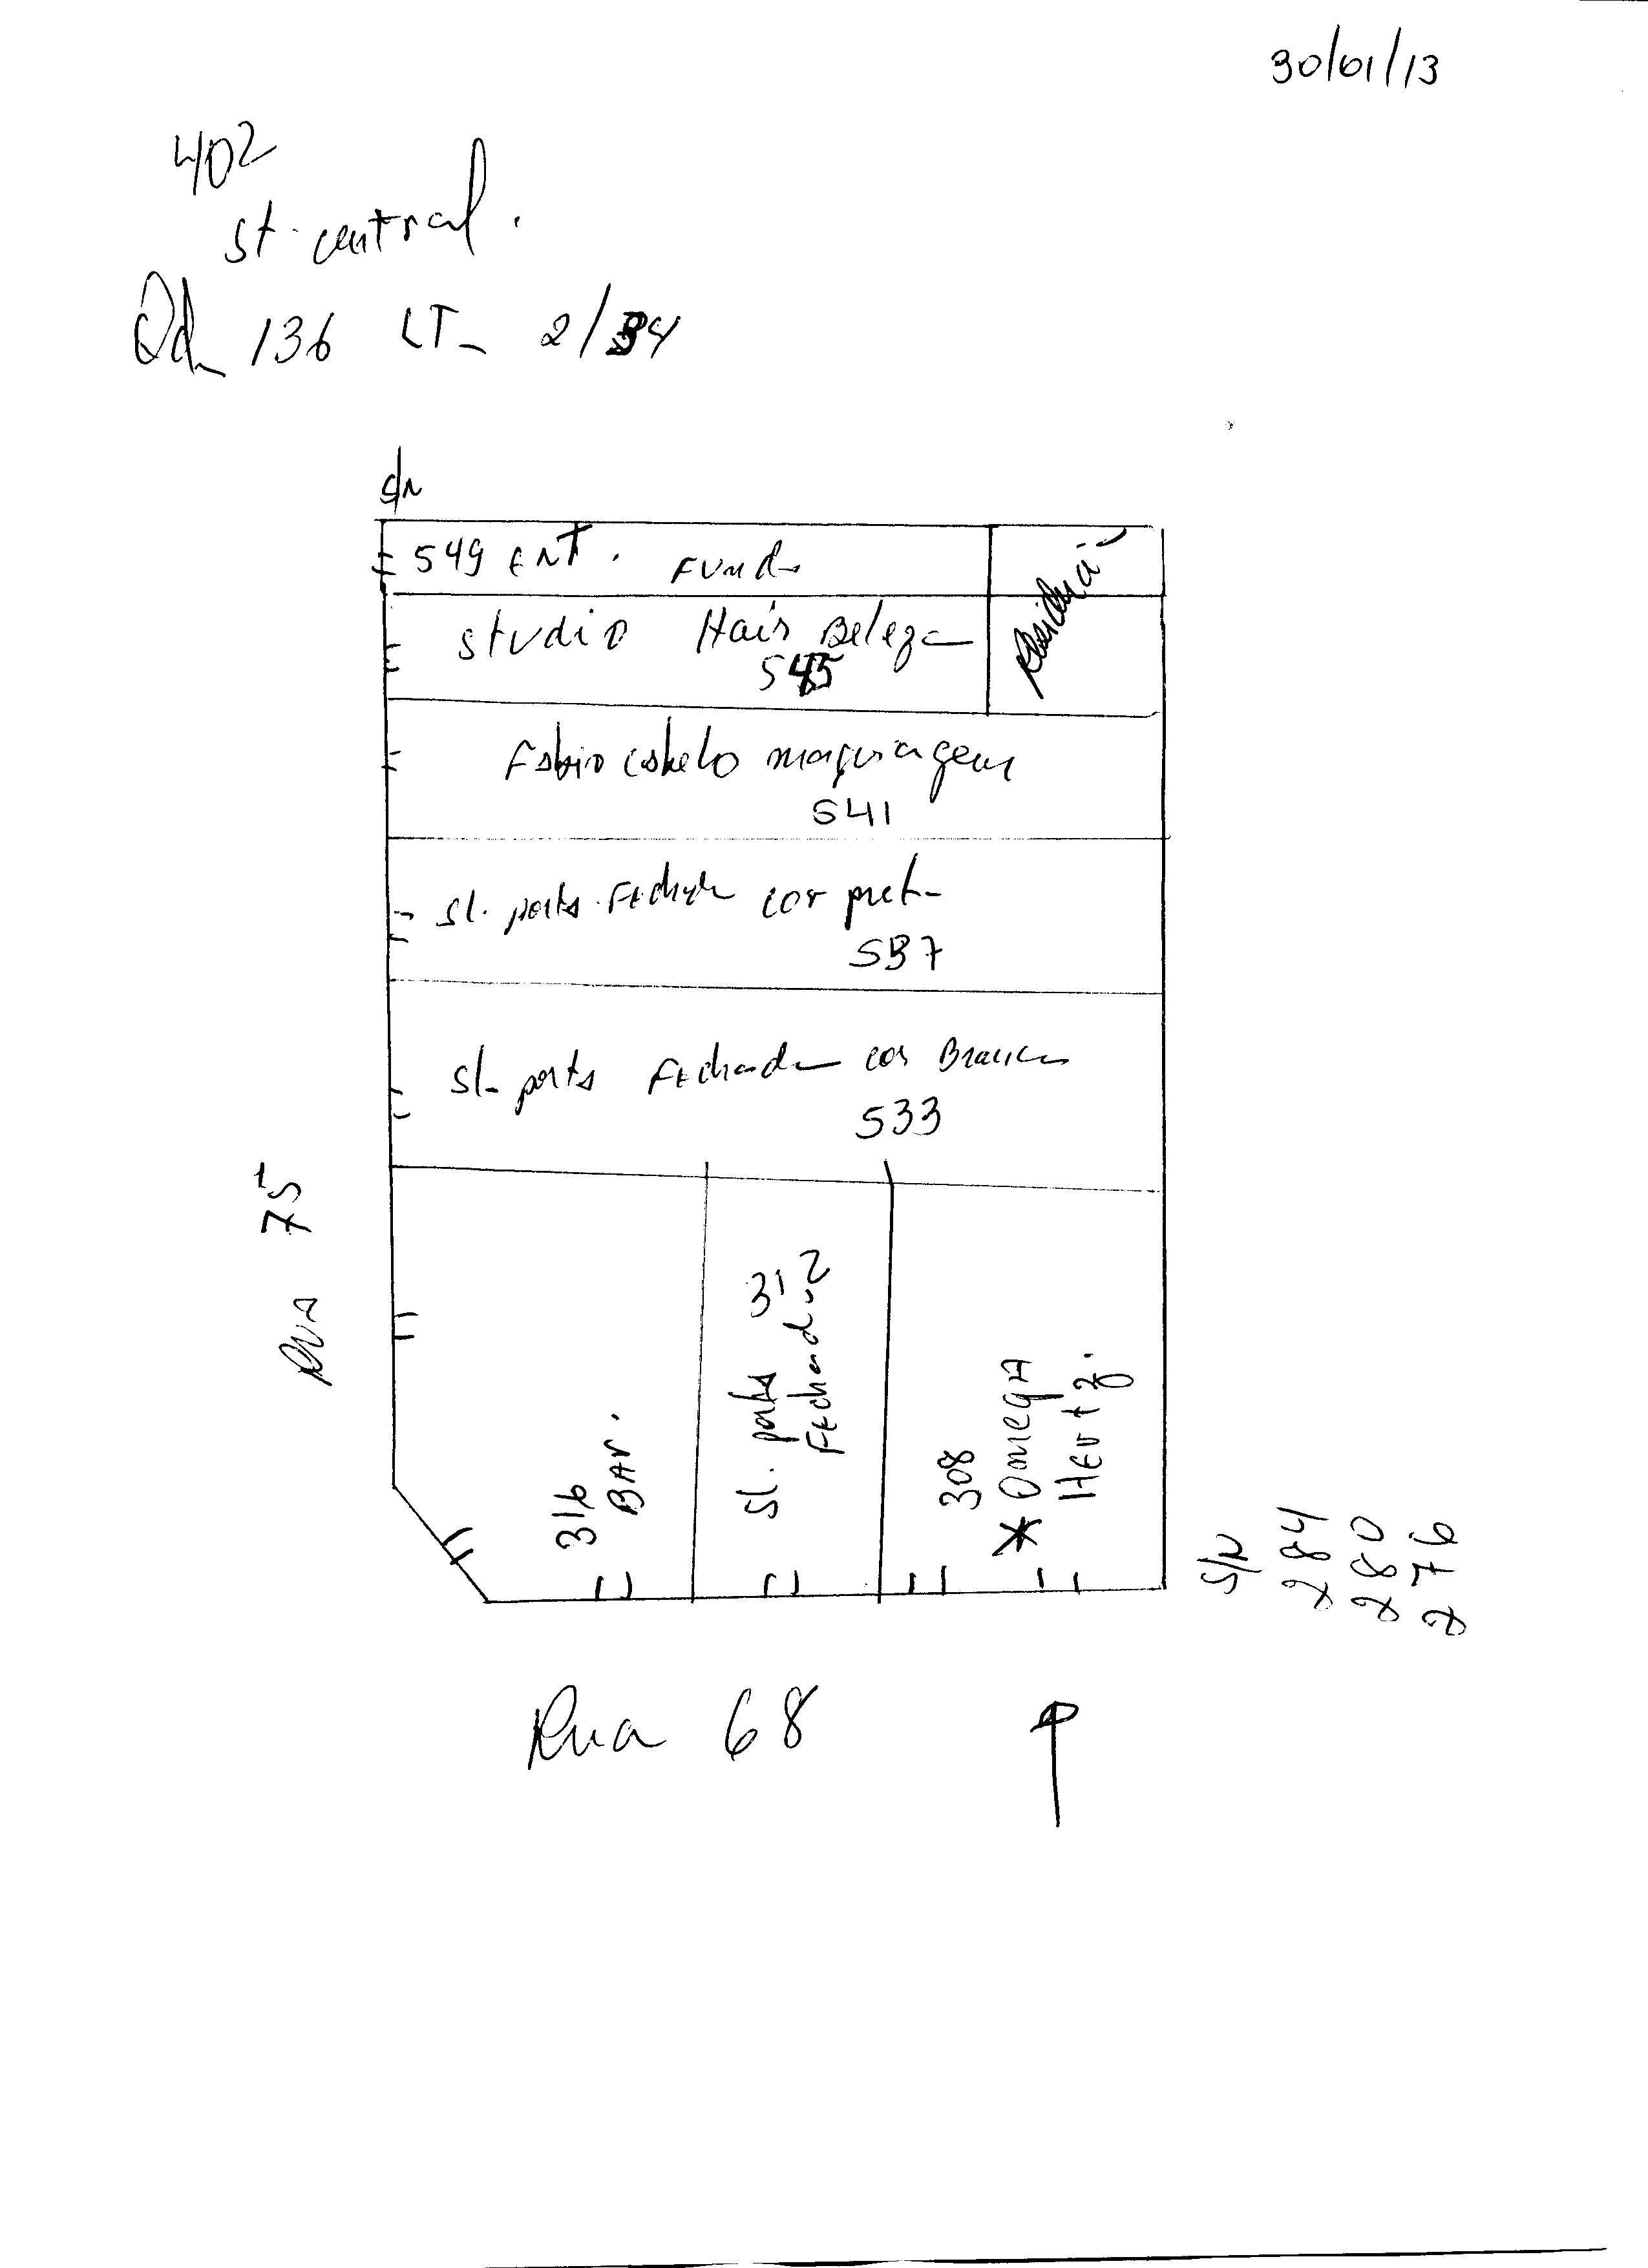 30/01/13
402
st. central.
Qd 136 LT- 2/34
S/N
549 ENT. Fundo
Residencia
Studio Hair Beleza
545
Fabio cabelo maquiagem
541
sl. porta Fechada cor preta
537
sl- porta Fechada cor Branca
533
Rua 75
316
BAr.
sl. porta 312
Fechada
308
* Omega
HErtz.
S/N
284
280
276
Rua 68